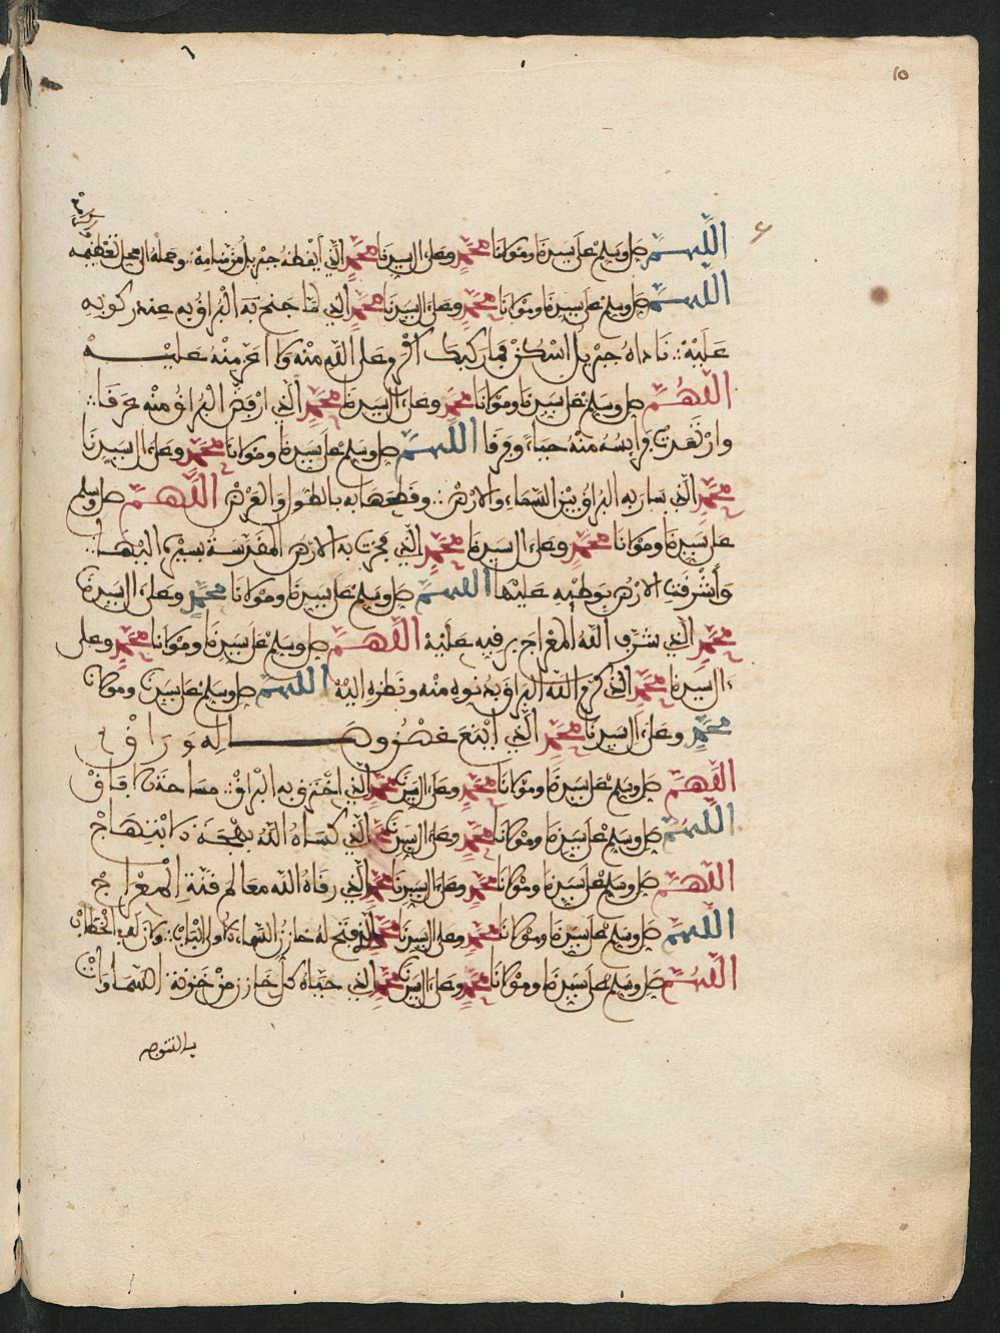 10
اللهم صل وسلم على سيدنا ومولانا محمد وعلى ءال سيدنا محمد الذي أيقظه جبريل من منامه وحمله الى محل تعظيمه
اللهم صل وسلم على سيدنا ومولانا محمد وعلى ءال سيدنا محمد الذي لما جنح به البراق به عند ركوبه
عليه ناداه جبريل اسكن فما ركبك أكرم على الله منه ولا أعز منه عليه
اللهم صل وسلم على سيدنا ومولانا محمد وعلى ءال سيدنا محمد الذي ارفض البراق منه عرفا
وارتعدت فرايسه منه حياء وفرفا اللهم صل وسلم على سيدنا ومولانا محمد وعلى ءال سيدنا
محمد الذي سار به البراق بين السماء والارض وقطعها به بالطول والعرض اللهم صل وسلم
على سيدنا ومولانا محمد وعلى ءال سيدنا محمد الذي به الارض المقدسة بسيره اليها
وأشرقت الارض بوطيه عليها اللهم صل وسلم على سيدنا ومولانا محمد وعلى ءال سيدنا
محمد الذي شرف الله المعراج برقيه عليه اللهم صل وسلم على سيدنا ومولانا محمد وعلى
ءال سيدنا محمد الذي كرم الله البراق بدنوه منه ونظره اليه اللهم صل وسلم على سيدنا ومولانا
محمد وعلى ءال سيدنا محمد الذي اينع غصون اله وراق
اللهم صل وسلم على سيدنا ومولانا محمد وعلى ءال سيدنا محمد الذي اخترق به البراق مساحة الافاق
اللهم صل وسلم على سيدنا ومولانا محمد وعلى ءال سيدنا محمد الذي كساه الله بهجة الابتهاج
اللهم صل وسلم على سيدنا ومولانا محمد وعلى ءال سيدنا محمد الذي رقاه الله معالم المعراج
اللهم صل وسلم على سيدنا ومولانا محمد وعلى ءال سيدنا محمد الذي فتح له خازن السماء الاولى الباب
اللهم صل وسلم على سيدنا ومولانا محمد وعلى ءال سيدنا محمد الذي حياه كل خازن من خزنة السماوات